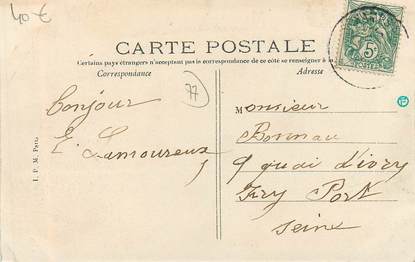 40 €
CARTE POSTALE
Certains pays étrangers n'acceptant pas la correspondance de ce côté se renseigner à
Correspondance
Adresse
5c
77
Bonjour
E. Lamoureux
Monsieur
Bonnau
9 quai d'ivry
Ivry Port
Seine
I. P. M. Paris